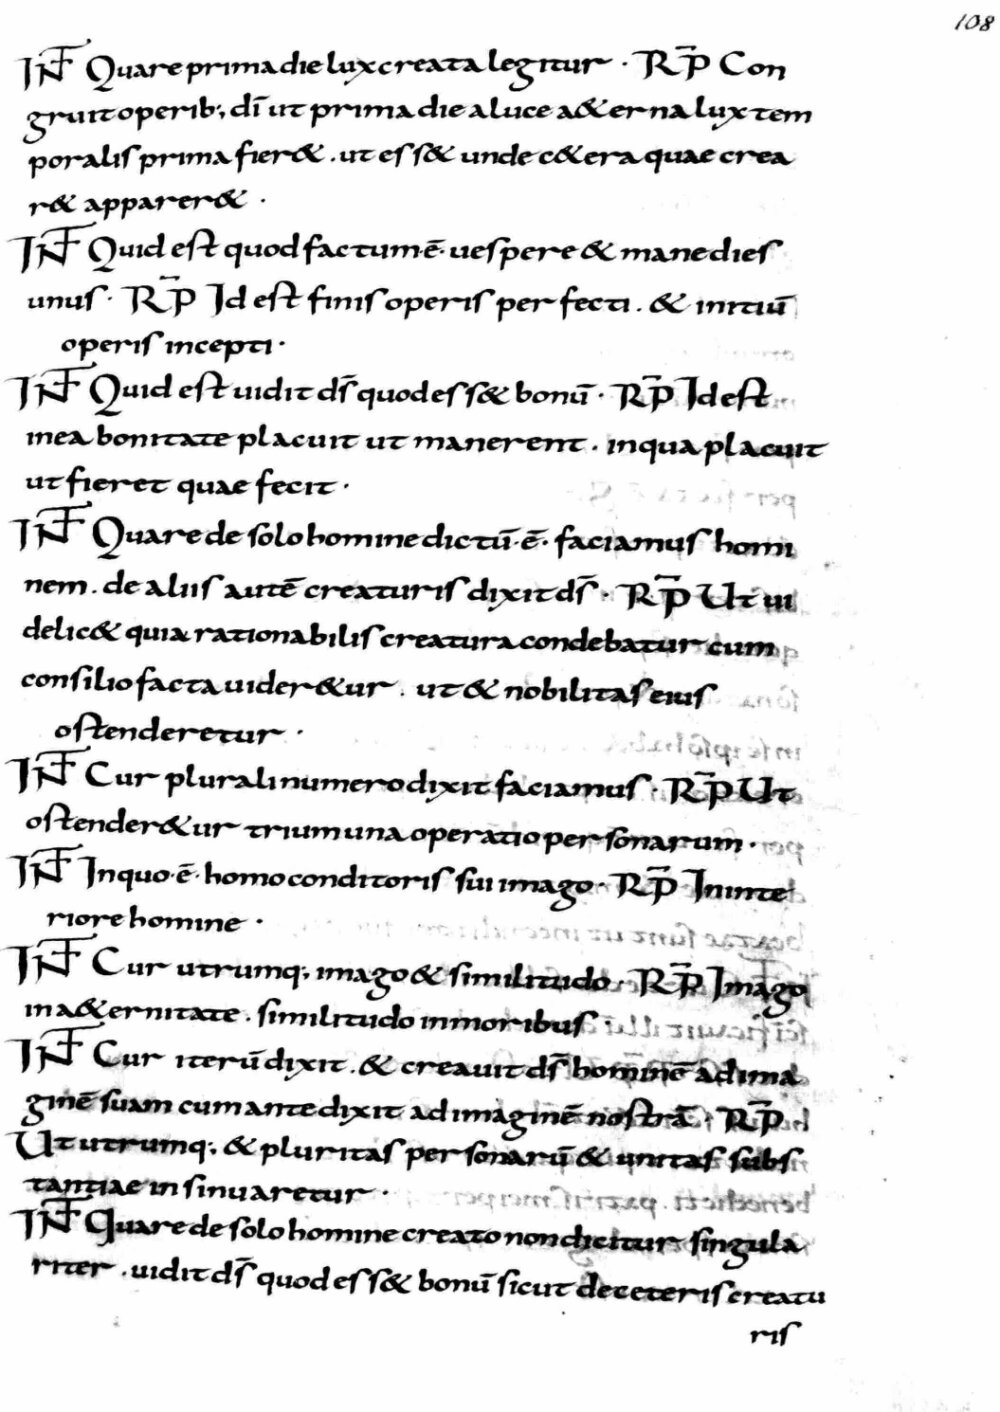 108
INT Quare prima die lux creata legitur · R̄P Con
gruit operib; dī ut prima die a luce a&erna lux tem
poralis prima fier& . ut ess& unde c&era quae crea
r& apparer& ·
INT Quid est quod factum·ē· uespere & mane dies
unus · R̄P Id est finis operis perfecti . & initiū
operis incepti ·
INT Quid est uidit dS̄ quod ess& bonū · R̄P Id est
in ea bonitate placuit ut manerent . in qua placuit
ut fieret quae fecit ·
INT Quare de solo homine dictū·ē· faciamus homi
nem . de aliis autē creaturis dixit dS̄ · R̄P Ut ui
delic& quia rationabilis creatura condebatur cum
consilio facta uider&ur . ut & nobilitas eius
ostenderetur ·
INT Cur plurali numero dixit faciamus · R̄P Ut
ostender&ur trium una operatio personarum ·
INT In quo·ē· homo conditoris sui imago · R̄P In inte
riore homine ·
INT Cur utrumq; imago & similitudo · R̄P Imago
in a&ernitate . similitudo in moribus
INT Cur iterū dixit . & creauit dS̄ hominē ad ima
ginē suam cum ante dixit ad imaginē nostrā · R̄P
Ut utrumq; & pluritas personarū & unitas subs
tantiae insinuaretur ·
INT Quare de solo homine creato non dicitur singula
riter . uidit dS̄ quod ess& bonū sicut de ceteris creatu
ris